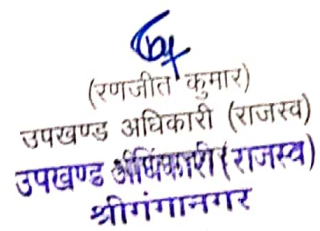 (रणजीत कुमार)
उपखण्ड अधिकारी (राजस्व)
उपखण्ड अधिकारी (राजस्व)
श्रीगंगानगर